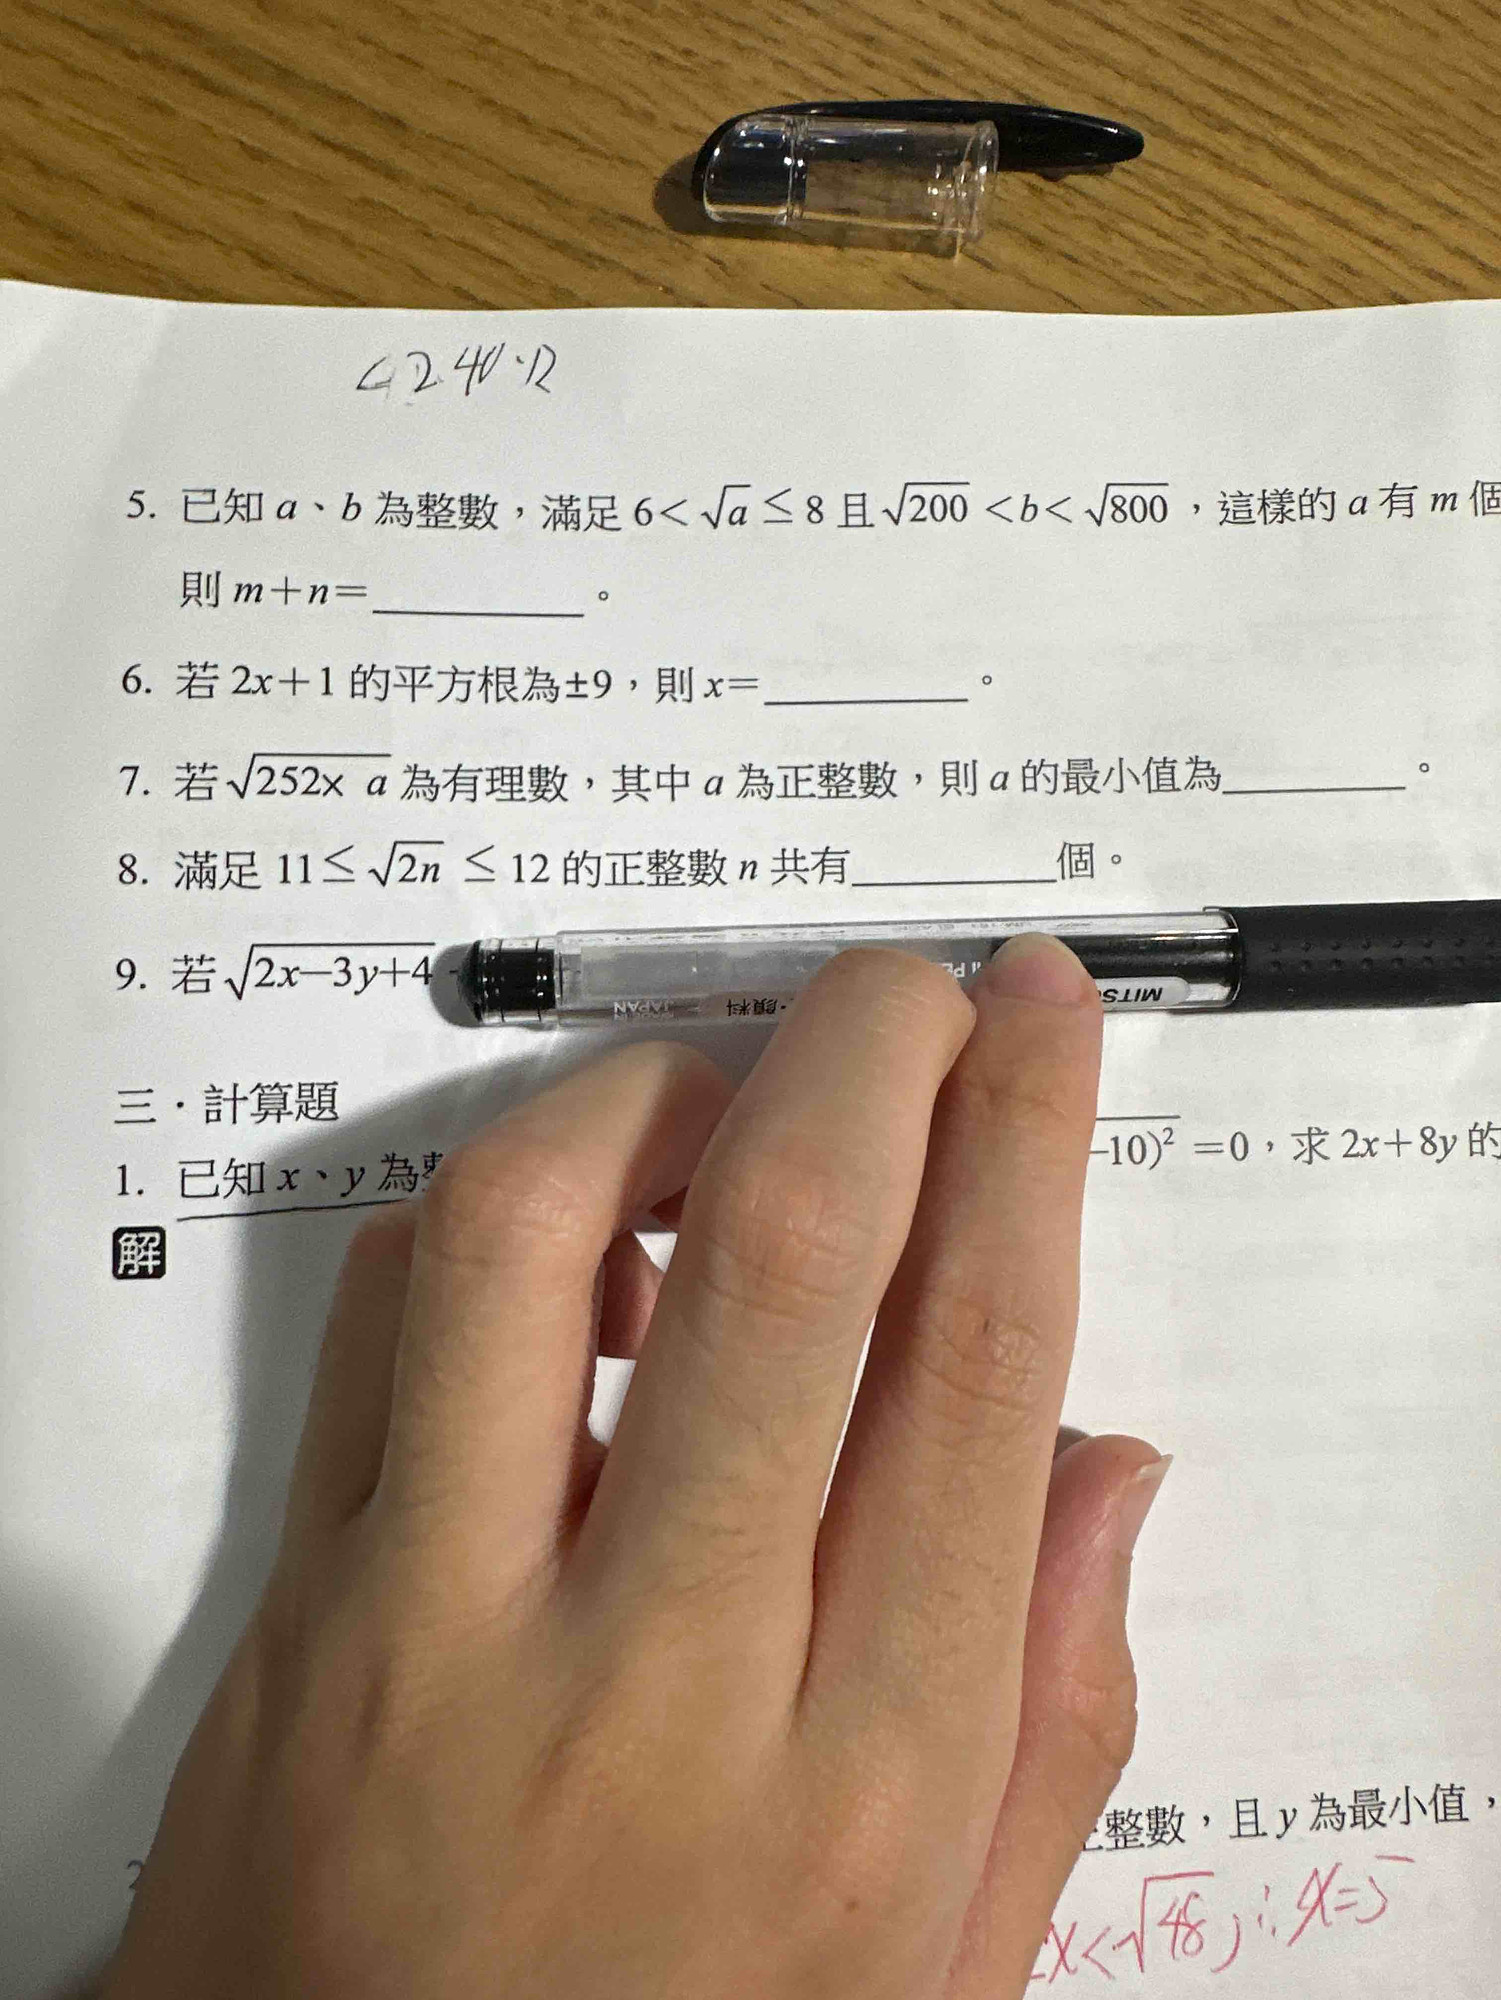 5. 已知 a、b 為整數，滿足 6<√a≤8 且√200<b<√800，這樣的 a 有 m 個
則 m+n=________。
6. 若 2x+1 的平方根為±9，則 x=________。
7. 若√252× a 為有理數，其中 a 為正整數，則 a 的最小值為________。
8. 滿足 11≤√2n≤12 的正整數 n 共有________個。
9. 若√2x−3y+4
JAPAN
顏料
三．計算題
1. 已知 x、y 為
−10)²=0，求 2x+8y 的
解
整數，且 y 為最小值，
x<√48，∴x=5